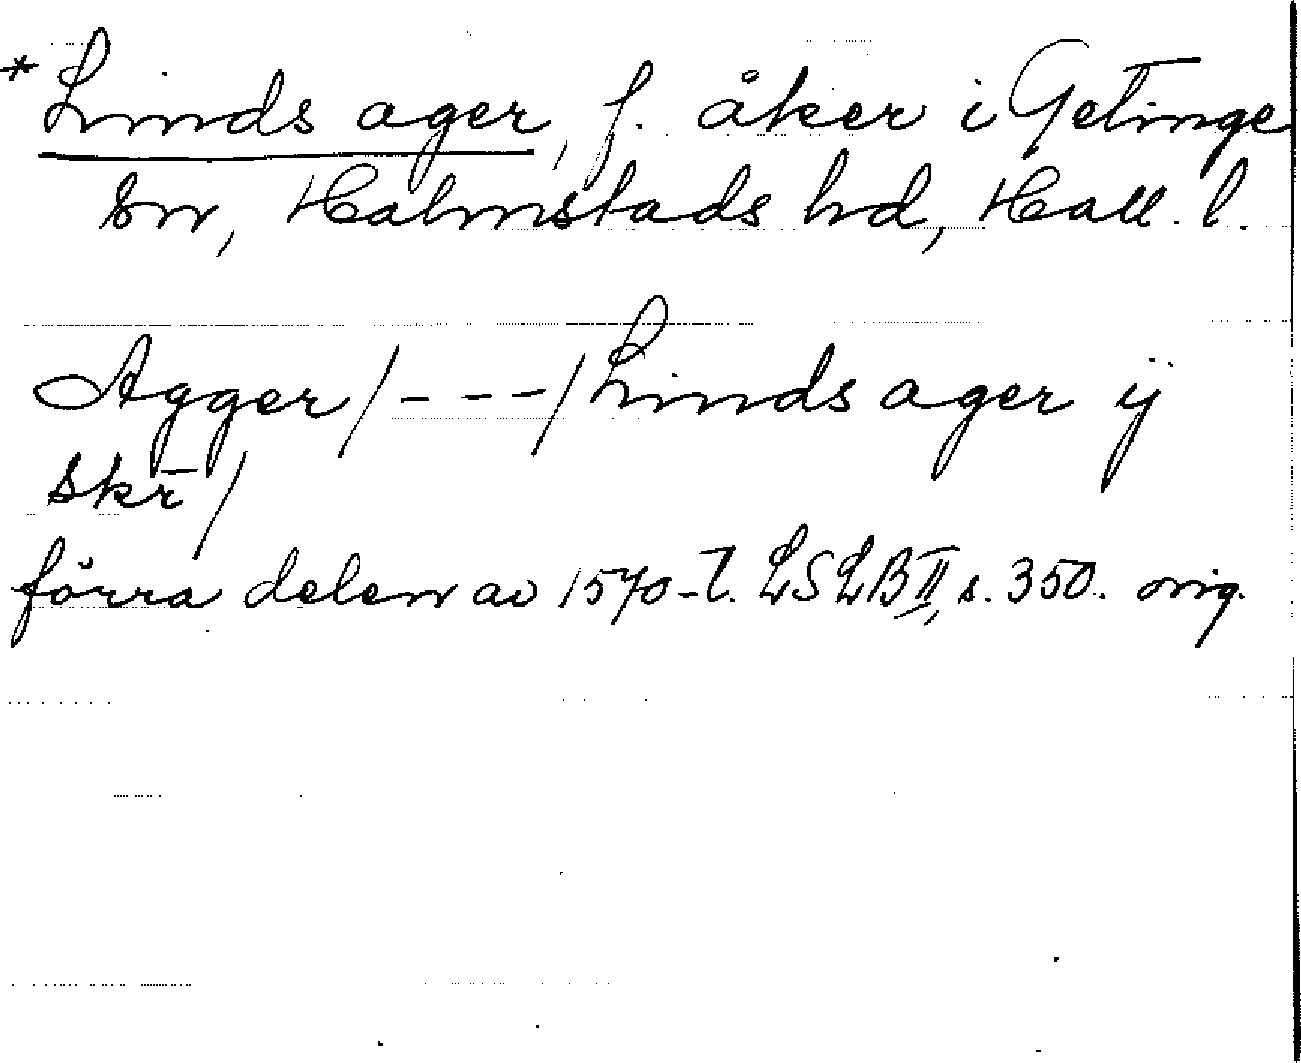 * Linds ager, f. åker i Getinge
sn, Halmstads hd, Hall. l.
Agger/---/Linds ager ij
skr̄/
förra delen av 1570-t. LSLB II, s. 350. orig.